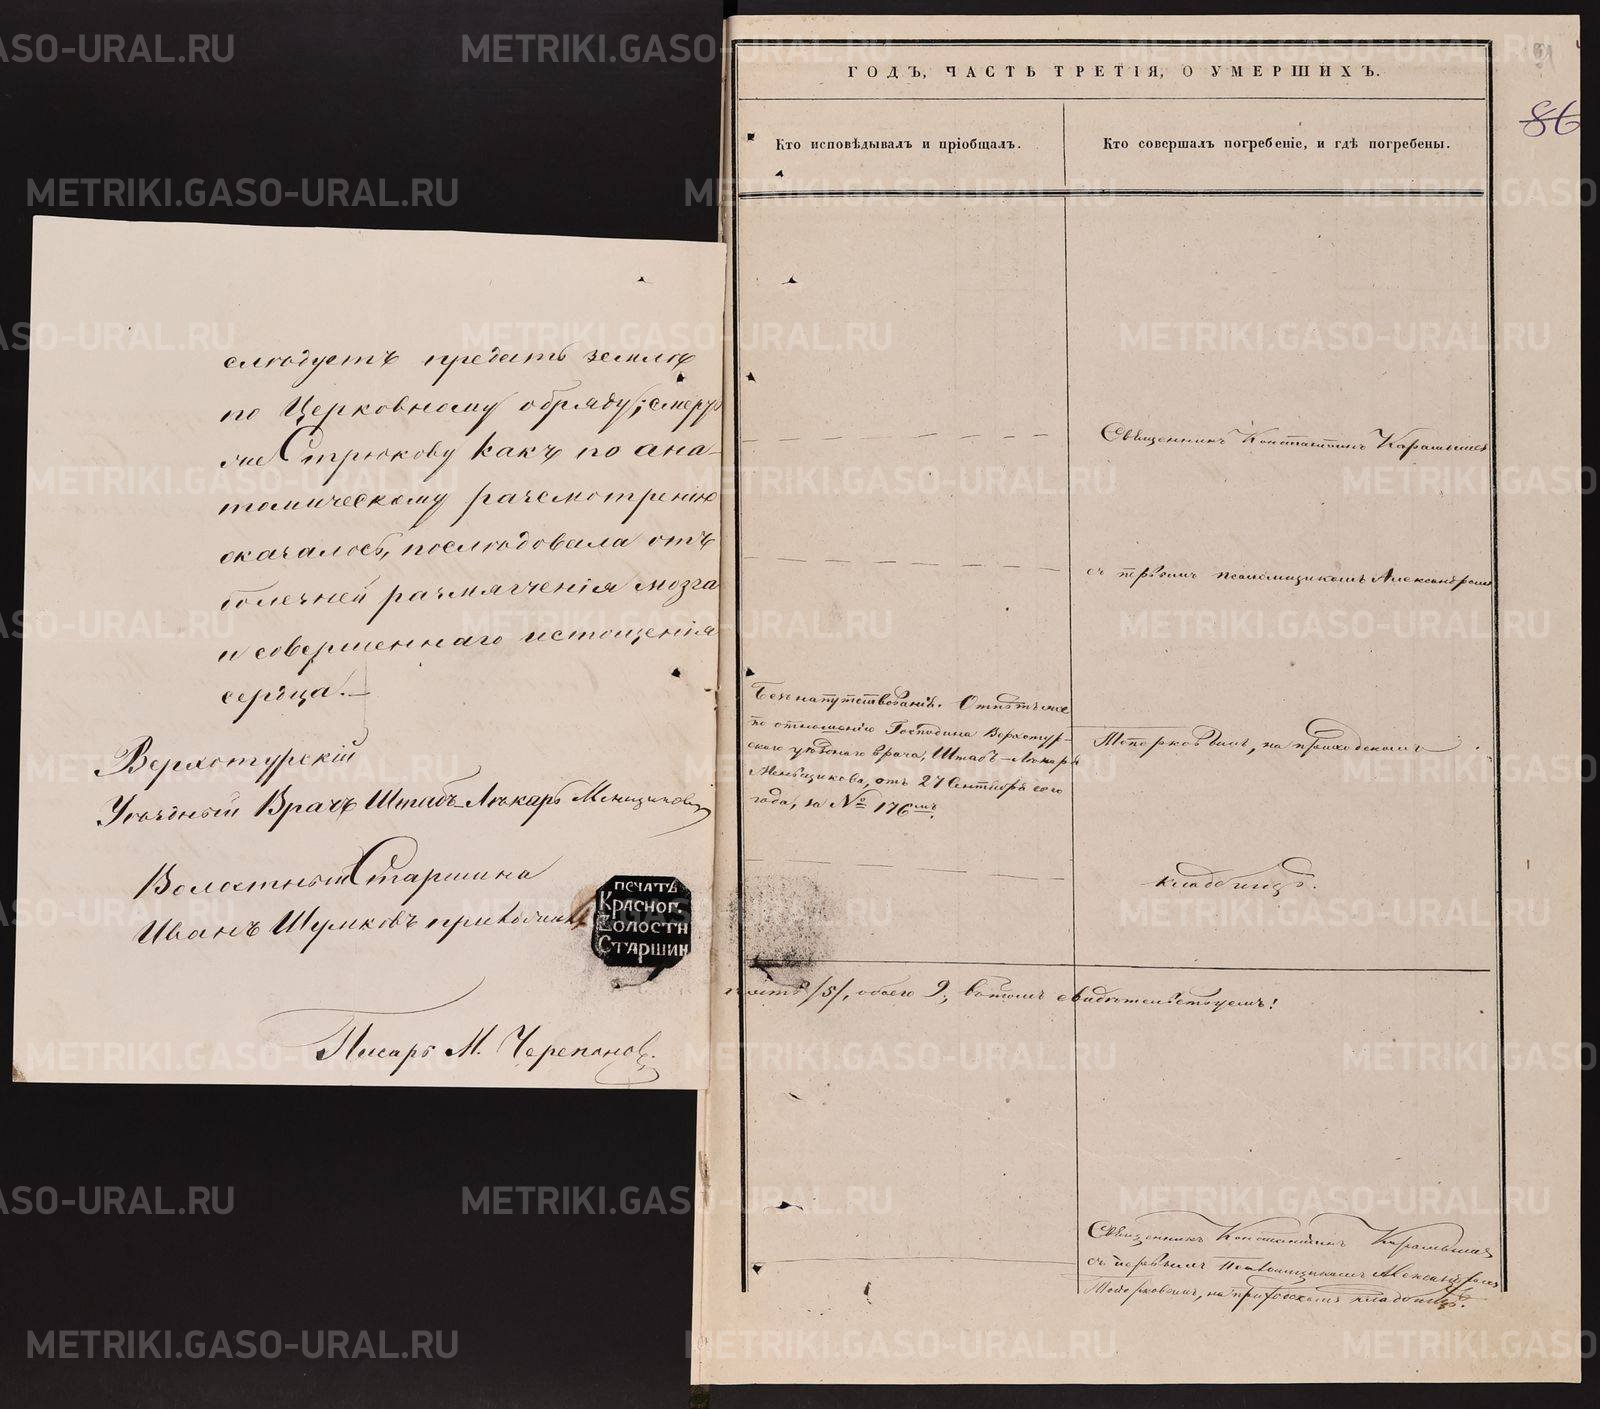 слѣдуетъ предать землѣ
по Церковному обряду; смерть
же Стрюкову какъ по ана-
томическому разсмотрѣнію
оказалось, послѣдовала отъ
болезней размягченія мозга
и совершеннаго истощенія
сердца.
Верхотурскій
Уѣздный Врачъ Штабъ-Лѣкарь Меньщиковъ
Волостный Старшина
Иванъ Шумковъ приложилъ
ПЕЧАТЬ
КРАСНОГ.
ВОЛОСТН
СТАРШИН
Писарь М. Черепановъ.
ГОДЪ, ЧАСТЬ ТРЕТІЯ, О УМЕРШИХЪ.
91
86
Кто исповѣдывалъ и пріобщалъ.
Кто совершалъ погребеніе, и гдѣ погребены.
Священникъ Константинъ Карамышев
съ первымъ псаломщикомъ Александромъ
Безъ напутствованія. Отпѣтъ же
по отношенію Господина Верхотур-
скаго уѣзднаго врача, Штабъ-Лѣкаря
Меньщикова, отъ 27 Сентября сего
года, за № 176мъ.
Топорковымъ, на приходскомъ
кладбищѣ.
/5/, обоего 9, въ томъ свидѣтельствуемъ!
Священникъ Константинъ Карамышев
съ первымъ псаломщикомъ Александромъ
Топорковымъ, на приходскомъ кладбищѣ.
METRIKI.GASO-URAL.RU